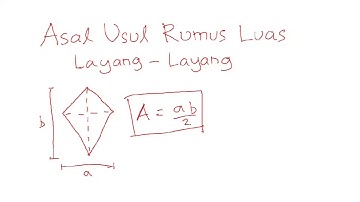 Asal Usul Rumus Luas
Layang-Layang
b
A = ab/2
a